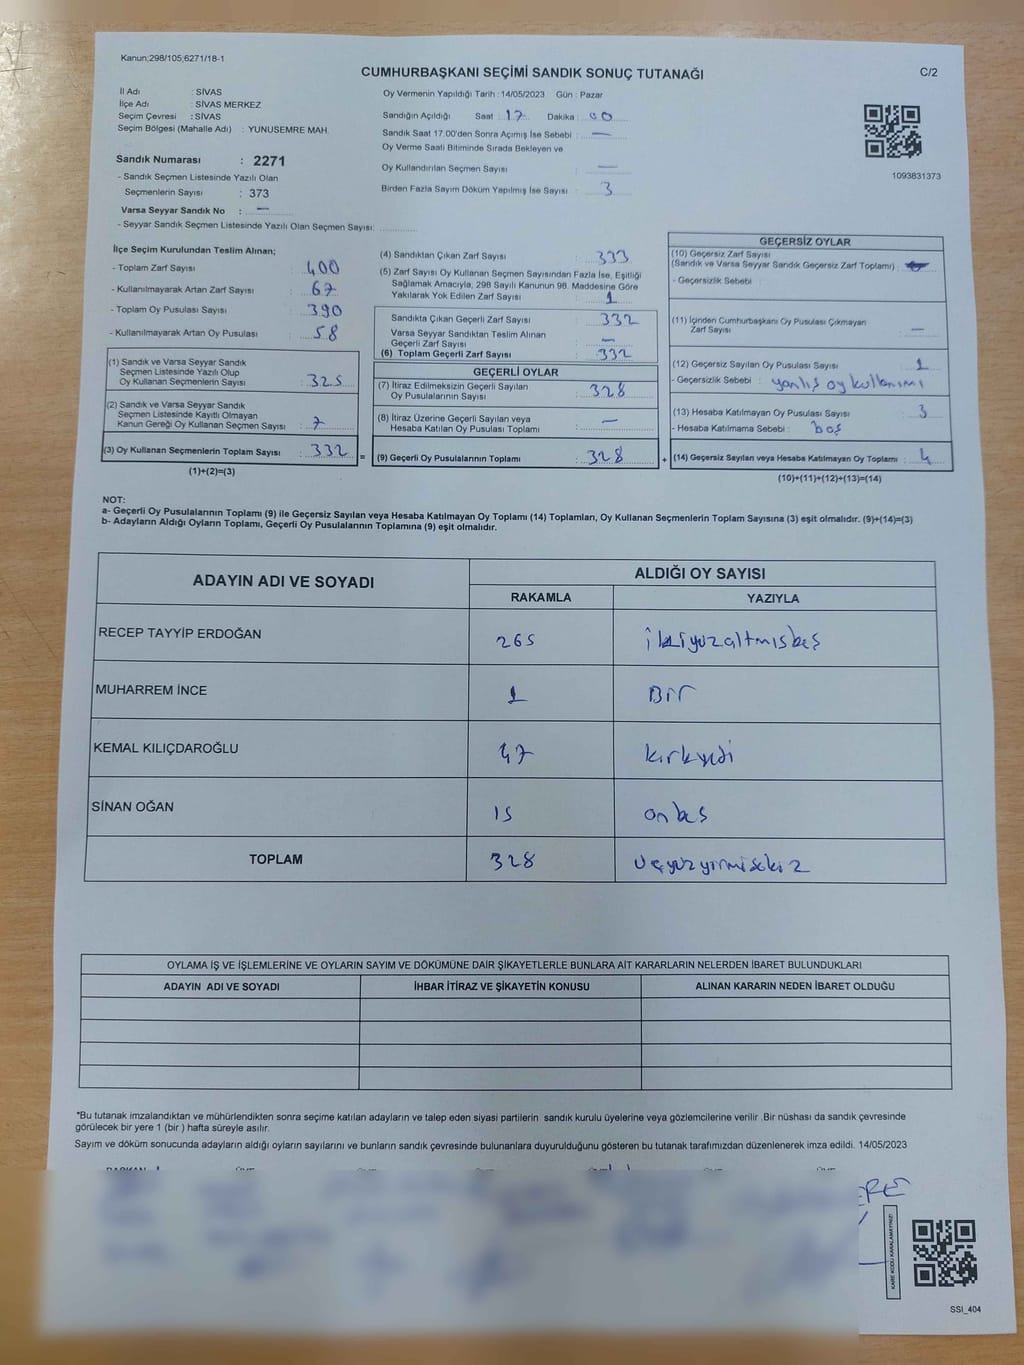 Kanun;298/105;6271/18-1
CUMHURBAŞKANI SEÇİMİ SANDIK SONUÇ TUTANAĞI
C/2
İl Adı : SİVAS
İlçe Adı : SİVAS MERKEZ
Seçim Çevresi : SİVAS
Seçim Bölgesi (Mahalle Adı) : YUNUSEMRE MAH.
Sandık Numarası : 2271
- Sandık Seçmen Listesinde Yazılı Olan
Seçmenlerin Sayısı : 373
Varsa Seyyar Sandık No : —
- Seyyar Sandık Seçmen Listesinde Yazılı Olan Seçmen Sayısı:
Oy Vermenin Yapıldığı Tarih : 14/05/2023 Gün : Pazar
Sandığın Açıldığı Saat : 17 Dakika : 00
Sandık Saat 17.00'den Sonra Açımış İse Sebebi : —
Oy Verme Saati Bitiminde Sırada Bekleyen ve
Oy Kullandırılan Seçmen Sayısı : —
Birden Fazla Sayım Döküm Yapılmış İse Sayısı : 3
1093831373
İlçe Seçim Kurulundan Teslim Alınan;
- Toplam Zarf Sayısı : 400
- Kullanılmayarak Artan Zarf Sayısı : 67
- Toplam Oy Pusulası Sayısı : 390
- Kullanılmayarak Artan Oy Pusulası : 58
(1) Sandık ve Varsa Seyyar Sandık
Seçmen Listesinde Yazılı Olup
Oy Kullanan Seçmenlerin Sayısı : 325
(2) Sandık ve Varsa Seyyar Sandık
Seçmen Listesinde Kayıtlı Olmayan
Kanun Gereği Oy Kullanan Seçmen Sayısı : 7
(3) Oy Kullanan Seçmenlerin Toplam Sayısı : 332
(1)+(2)=(3)
(4) Sandıktan Çıkan Zarf Sayısı : 333
(5) Zarf Sayısı Oy Kullanan Seçmen Sayısından Fazla İse, Eşitliği
Sağlamak Amacıyla, 298 Sayılı Kanunun 98. Maddesine Göre
Yakılarak Yok Edilen Zarf Sayısı : 1
Sandıkta Çıkan Geçerli Zarf Sayısı : 332
Varsa Seyyar Sandıktan Teslim Alınan
Geçerli Zarf Sayısı : —
(6) Toplam Geçerli Zarf Sayısı : 332
GEÇERLİ OYLAR
(7) İtiraz Edilmeksizin Geçerli Sayılan
Oy Pusulalarının Sayısı : 328
(8) İtiraz Üzerine Geçerli Sayılan veya
Hesaba Katılan Oy Pusulası Toplamı : —
= (9) Geçerli Oy Pusulalarının Toplamı : 328
GEÇERSİZ OYLAR
(10) Geçersiz Zarf Sayısı
(Sandık ve Varsa Seyyar Sandık Geçersiz Zarf Toplamı) :
- Geçersizlik Sebebi :
(11) İçinden Cumhurbaşkanı Oy Pusulası Çıkmayan
Zarf Sayısı : —
(12) Geçersiz Sayılan Oy Pusulası Sayısı : 1
- Geçersizlik Sebebi : yanlış oy kullanımı
(13) Hesaba Katılmayan Oy Pusulası Sayısı : 3
- Hesaba Katılmama Sebebi : boş
+ (14) Geçersiz Sayılan veya Hesaba Katılmayan Oy Toplamı : 4
(10)+(11)+(12)+(13)=(14)
NOT:
a- Geçerli Oy Pusulalarının Toplamı (9) ile Geçersiz Sayılan veya Hesaba Katılmayan Oy Toplamı (14) Toplamları, Oy Kullanan Seçmenlerin Toplam Sayısına (3) eşit olmalıdır. (9)+(14)=(3)
b- Adayların Aldığı Oyların Toplamı, Geçerli Oy Pusulalarının Toplamına (9) eşit olmalıdır.
ADAYIN ADI VE SOYADI
ALDIĞI OY SAYISI
RAKAMLA YAZIYLA
RECEP TAYYİP ERDOĞAN 265 ikiyüzaltmışbeş
MUHARREM İNCE 1 Bir
KEMAL KILIÇDAROĞLU 47 kırkyedi
SİNAN OĞAN 15 onbeş
TOPLAM 328 üçyüzyirmisekiz
OYLAMA İŞ VE İŞLEMLERİNE VE OYLARIN SAYIM VE DÖKÜMÜNE DAİR ŞİKAYETLERLE BUNLARA AİT KARARLARIN NELERDEN İBARET BULUNDUKLARI
ADAYIN ADI VE SOYADI İHBAR İTİRAZ VE ŞİKAYETİN KONUSU ALINAN KARARIN NEDEN İBARET OLDUĞU
*Bu tutanak imzalandıktan ve mühürlendikten sonra seçime katılan adayların ve talep eden siyasi partilerin sandık kurulu üyelerine veya gözlemcilerine verilir .Bir nüshası da sandık çevresinde
görülecek bir yere 1 (bir ) hafta süreyle asılır.
Sayım ve döküm sonucunda adayların aldığı oyların sayılarını ve bunların sandık çevresinde bulunanlara duyurulduğunu gösteren bu tutanak tarafımızdan düzenlenerek imza edildi. 14/05/2023
KARE KODU KARALAMAYINIZ!
SSI_404